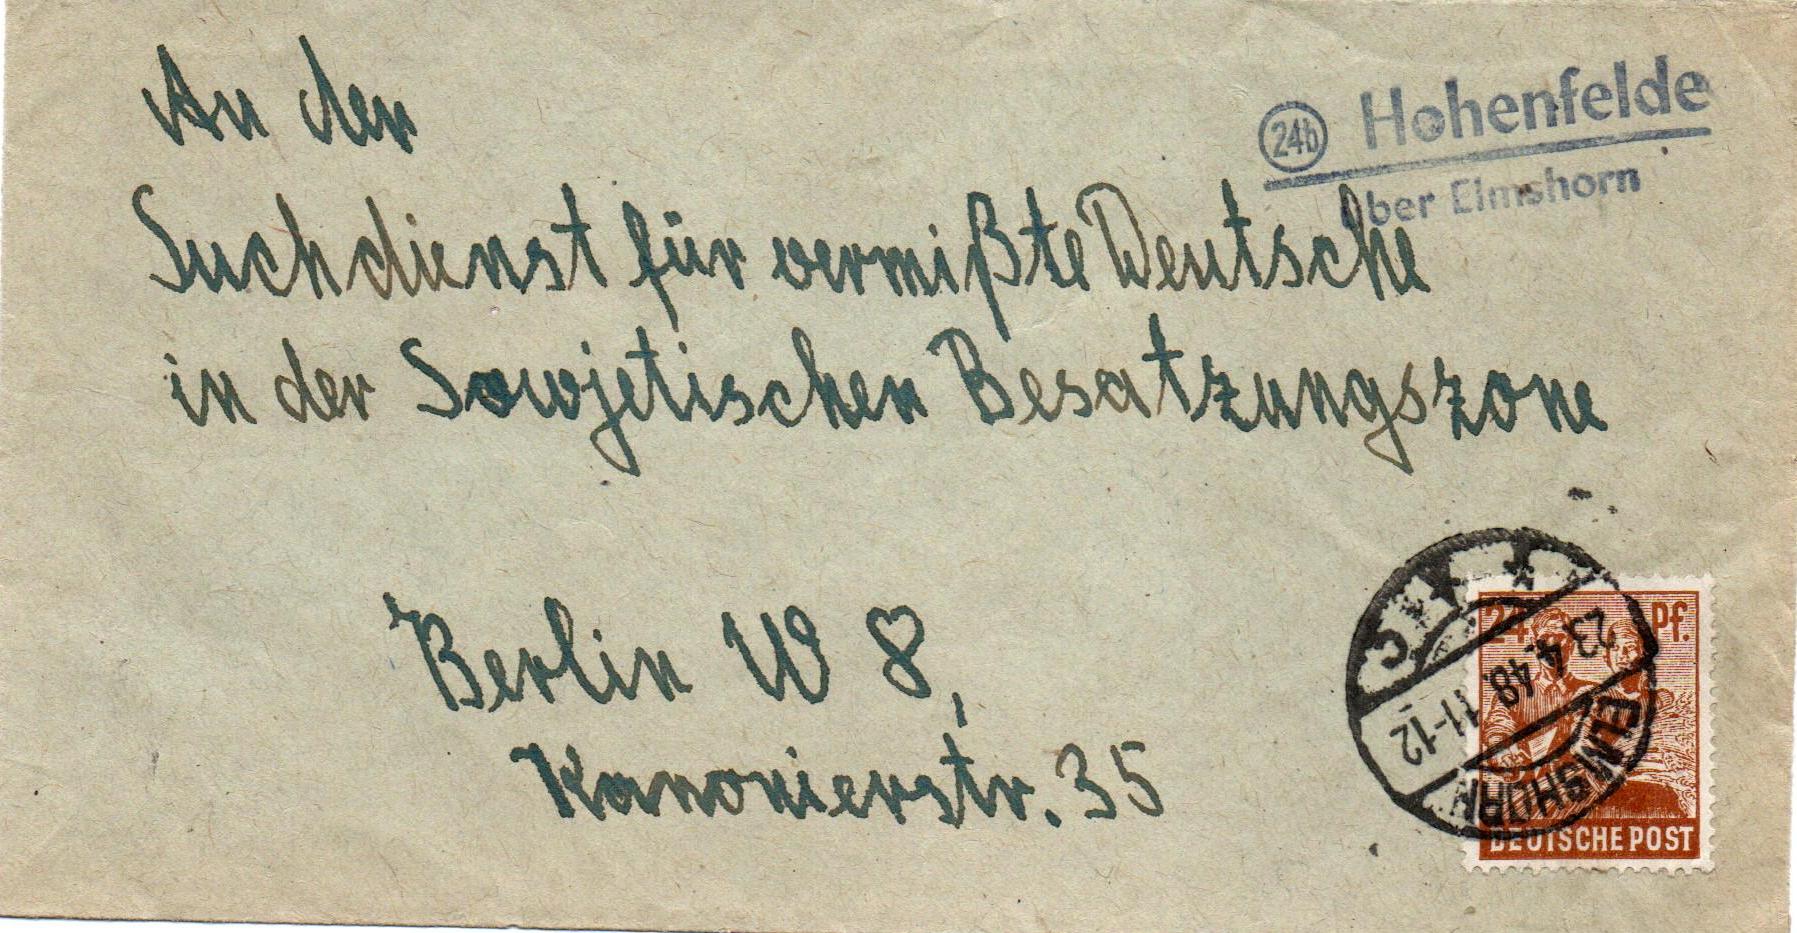 An den
Suchdienst für vermißte Deutsche
in der Sowjetischen Besatzungszone
Berlin W 8,
Kanonierstr. 35
24b Hohenfelde
über Elmshorn
24 Pf.
DEUTSCHE POST
ELMSHORN
23.4.48. 11-12